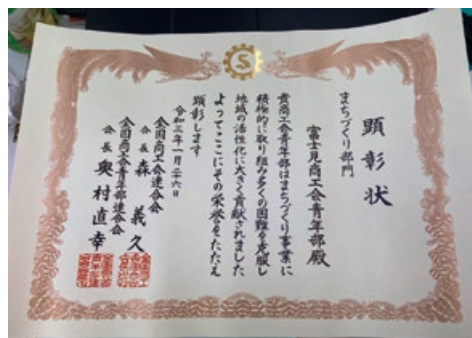 顕彰状
まちづくり部門
富士見商工会青年部殿
貴商工会青年部はまちづくり事業に
積極的に取り組み多くの困難を克服し
地域の活性化に大きく貢献されました
よってここにその栄誉をたたえ
顕彰します
令和三年一月二十六日
全国商工会連合会
会長 森義久
全国商工会青年部連合会
会長 奥村直幸